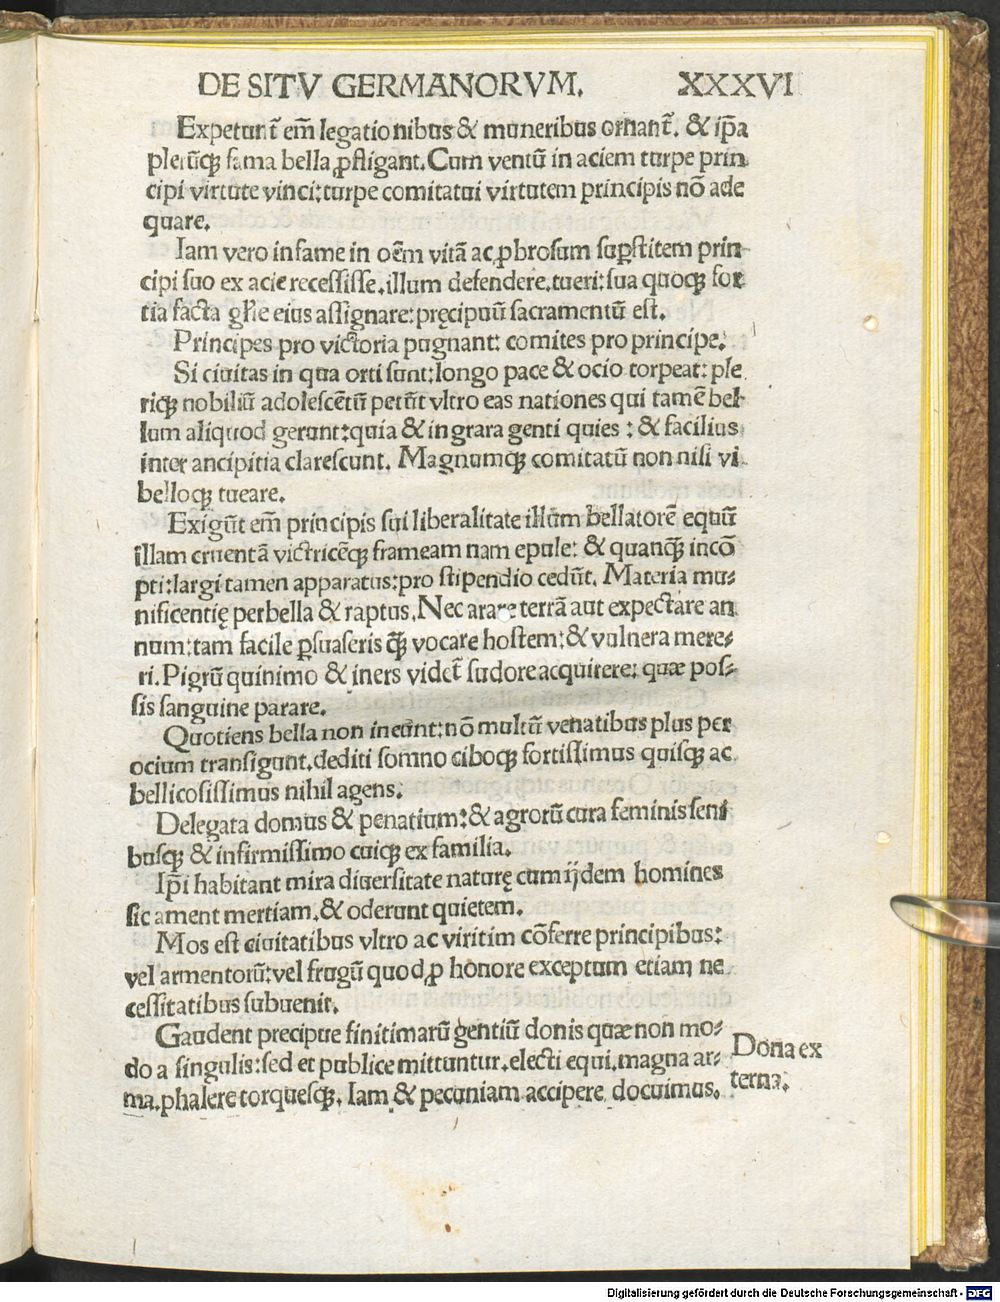 DE SITV GERMANORVM. XXXVI
Expetunt̃ em̃ legationibus & muneribus ornant̃. & ip̃a
plerũqꝫ fama bella ꝓfligant. Cum ventũ in aciem turpe prin
cipi virtute vinci: turpe comitatui virtutem principis nõ ade
quare.
Iam vero infame in oẽm vitã ac ꝓbrosum suꝑstitem prin-
cipi suo ex acie recessisse. illum defendere. tueri: sua quoqꝫ for
tia facta gl̃ie eius assignare: pręcipuũ sacramentũ est.
Principes pro victoria pugnant: comites pro principe.
Si ciuitas in qua orti sunt: longo pace & ocio torpeat: ple
riqꝫ nobiliũ adolescẽtũ petũt vltro eas nationes qui tamẽ bel-
lum aliquod gerunt: quia & ingrara genti quies: & facilius
inter ancipitia clarescunt. Magnumqꝫ comitatũ non nisi vi
belloqꝫ tueare.
Exigũt em̃ principis sui liberalitate illum bellatorẽ equũ
illam cruentã victricẽqꝫ frameam nam epule: & quanqꝫ̃ incõ
pti: largi tamen apparatus: pro stipendio cedũt. Materia mu-
nificentię per bella & raptus. Nec arare terrã aut expectare an
num: tam facile ꝑsuaseris qꝫ̃ vocare hostem: & vulnera mere-
ri. Pigrũ quinimo & iners videt̃ sudore acquirere: quæ pos-
sis sanguine parare.
Quotiens bella non ineunt: nõ multũ venatibus plus per
ocium transigunt. dediti somno ciboqꝫ fortissimus quisqꝫ ac
bellicosissimus nihil agens.
Delegata domus & penatium: & agrorũ cura feminis seni
busqꝫ & infirmissimo cuiqꝫ ex familia.
Ip̃i habitant mira diuersitate naturę cum ijdem homines
sic ament mertiam. & oderunt quietem.
Mos est ciuitatibus vltro ac viritim cõferre principibus:
vel armentorũ: vel frugũ quod ꝓ honore exceptum etiam ne
cessitatibus subuenit.
Gaudent precipue finitimarũ gentiũ donis quæ non mo-
do a singulis: sed et publice mittuntur. electi equi. magna ar-
ma. phalere torquesqꝫ. Iam & pecuniam accipere docuimus.
Dona ex
terna.
Digitalisierung gefördert durch die Deutsche Forschungsgemeinschaft - DFG